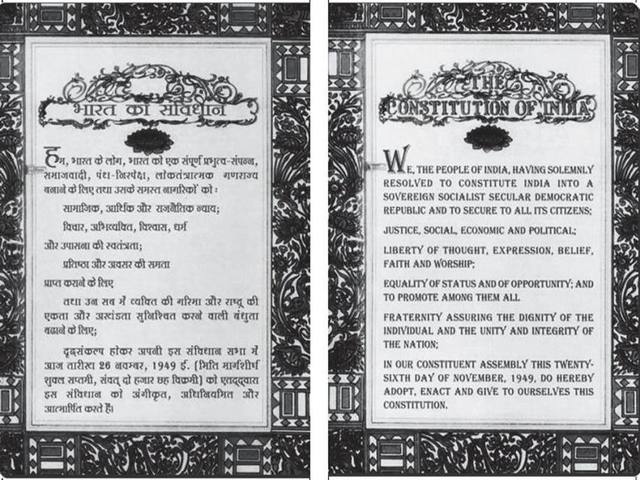 भारत का संविधान
हम, भारत के लोग, भारत को एक संपूर्ण प्रभुत्व-संपन्न,
समाजवादी, पंथ-निरपेक्ष, लोकतंत्रात्मक गणराज्य
बनाने के लिए तथा उसके समस्त नागरिकों को :
सामाजिक, आर्थिक और राजनैतिक न्याय;
विचार, अभिव्यक्ति, विश्वास, धर्म
और उपासना की स्वतंत्रता;
प्रतिष्ठा और अवसर की समता
प्राप्त कराने के लिए
तथा उन सब में व्यक्ति की गरिमा और राष्ट्र की
एकता और अखंडता सुनिश्चित करने वाली बंधुता
बढाने के लिए;
दृढसंकल्प होकर अपनी इस संविधान सभा में
आज तारीख 26 नवम्बर, 1949 ई. (मिति मार्गशीर्ष
शुक्ल सप्तमी, संवत् दो हजार छह विक्रमी) को एतद्द्वारा
इस संविधान को अंगीकृत, अधिनियमित और
आत्मार्पित करते हैं।
THE
CONSTITUTION OF INDIA
WE, THE PEOPLE OF INDIA, HAVING SOLEMNLY
RESOLVED TO CONSTITUTE INDIA INTO A
SOVEREIGN SOCIALIST SECULAR DEMOCRATIC
REPUBLIC AND TO SECURE TO ALL ITS CITIZENS;
JUSTICE, SOCIAL, ECONOMIC AND POLITICAL;
LIBERTY OF THOUGHT, EXPRESSION, BELIEF,
FAITH AND WORSHIP;
EQUALITY OF STATUS AND OF OPPORTUNITY; AND
TO PROMOTE AMONG THEM ALL
FRATERNITY ASSURING THE DIGNITY OF THE
INDIVIDUAL AND THE UNITY AND INTEGRITY OF
THE NATION;
IN OUR CONSTITUENT ASSEMBLY THIS TWENTY-
SIXTH DAY OF NOVEMBER, 1949, DO HEREBY
ADOPT, ENACT AND GIVE TO OURSELVES THIS
CONSTITUTION.